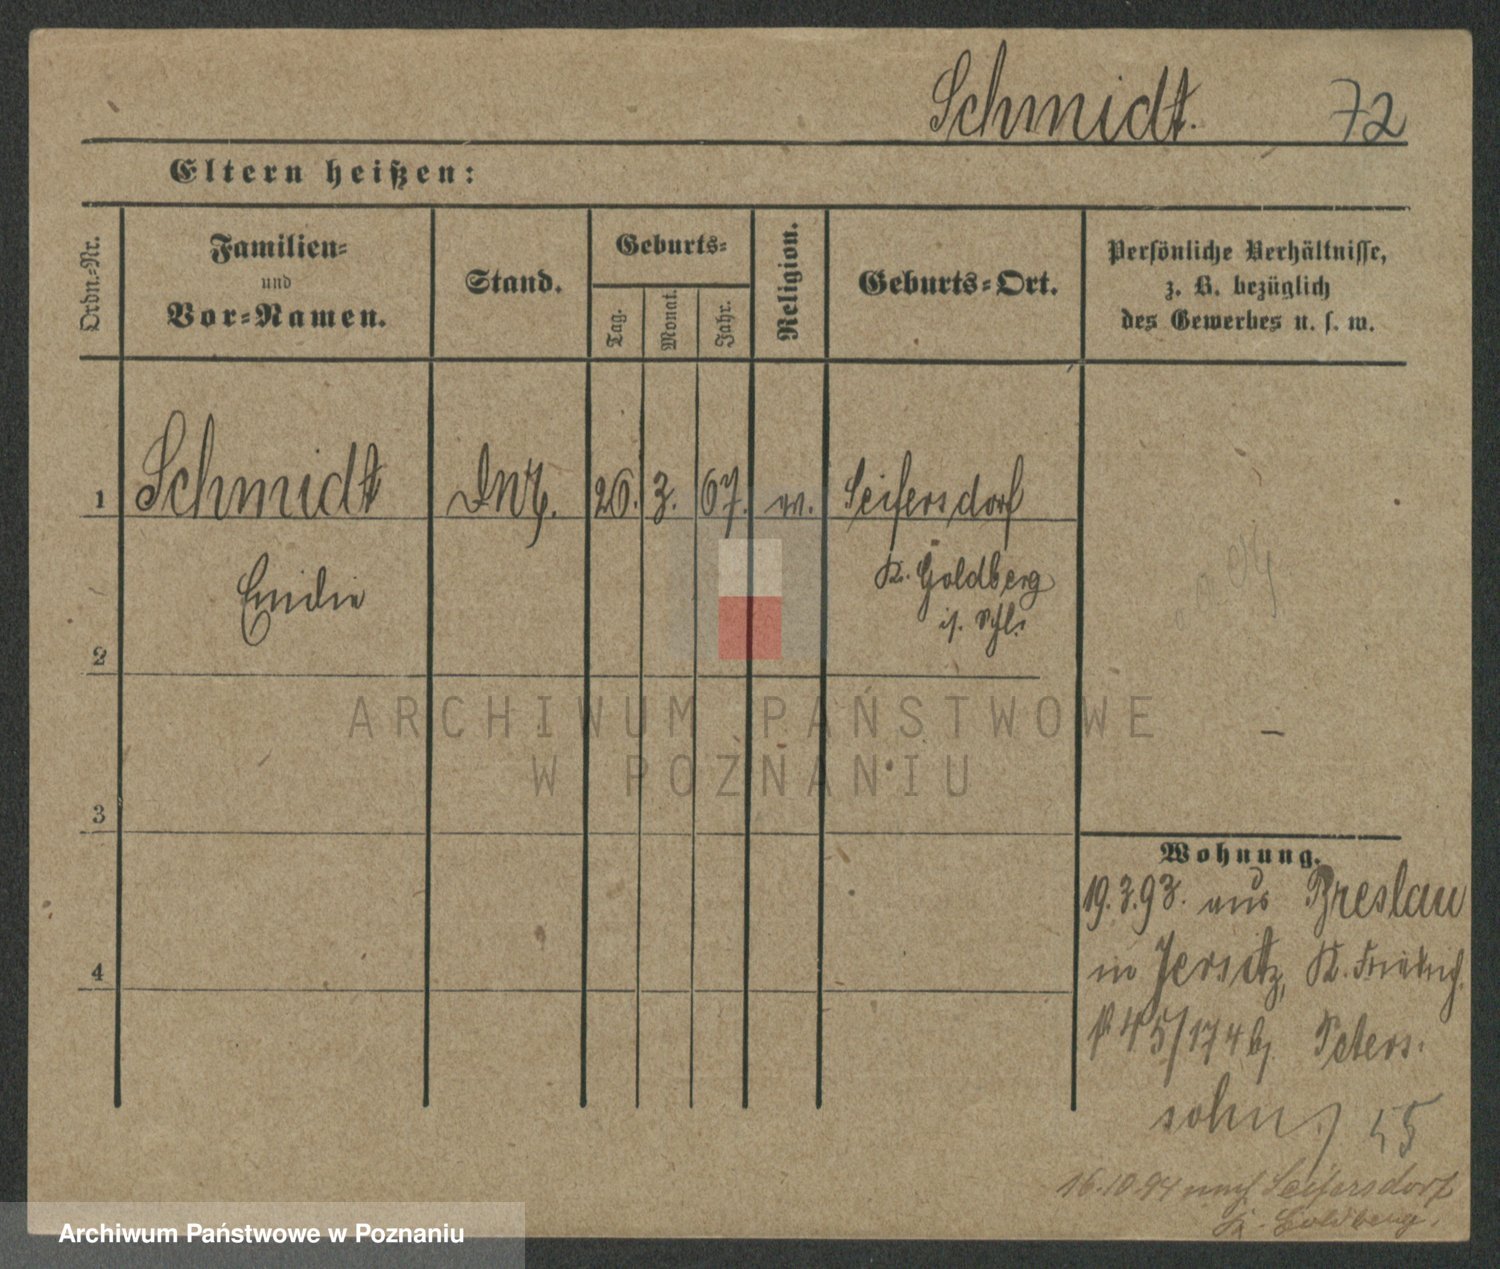 Schmidt. 72
Eltern heißen:
Ordn.-Nr.
Familien-
und
Vor-Namen.
Stand.
Geburts-
Tag.
Monat.
Jahr.
Religion.
Geburts-Ort.
Persönliche Verhältnisse,
z. B. bezüglich
des Gewerbes u. s. w.
1 Schmidt 26. 3. 67. Seifersdorf
Emilie
K. Goldberg
i. Schl.
2
ARCHIWUM PAŃSTWOWE
W POZNANIU
3
4
Wohnung.
19.3.93. aus Breslau
in Jersitz, K. Friedrich
45/174 b, Peters-
sohn 55
16.10.94 nach Seifersdorf
K. Goldberg.
Archiwum Państwowe w Poznaniu